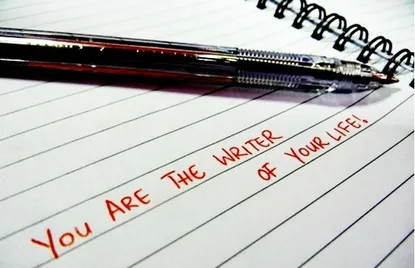 YOU ARE THE WRITER
OF YOUR LIFE!